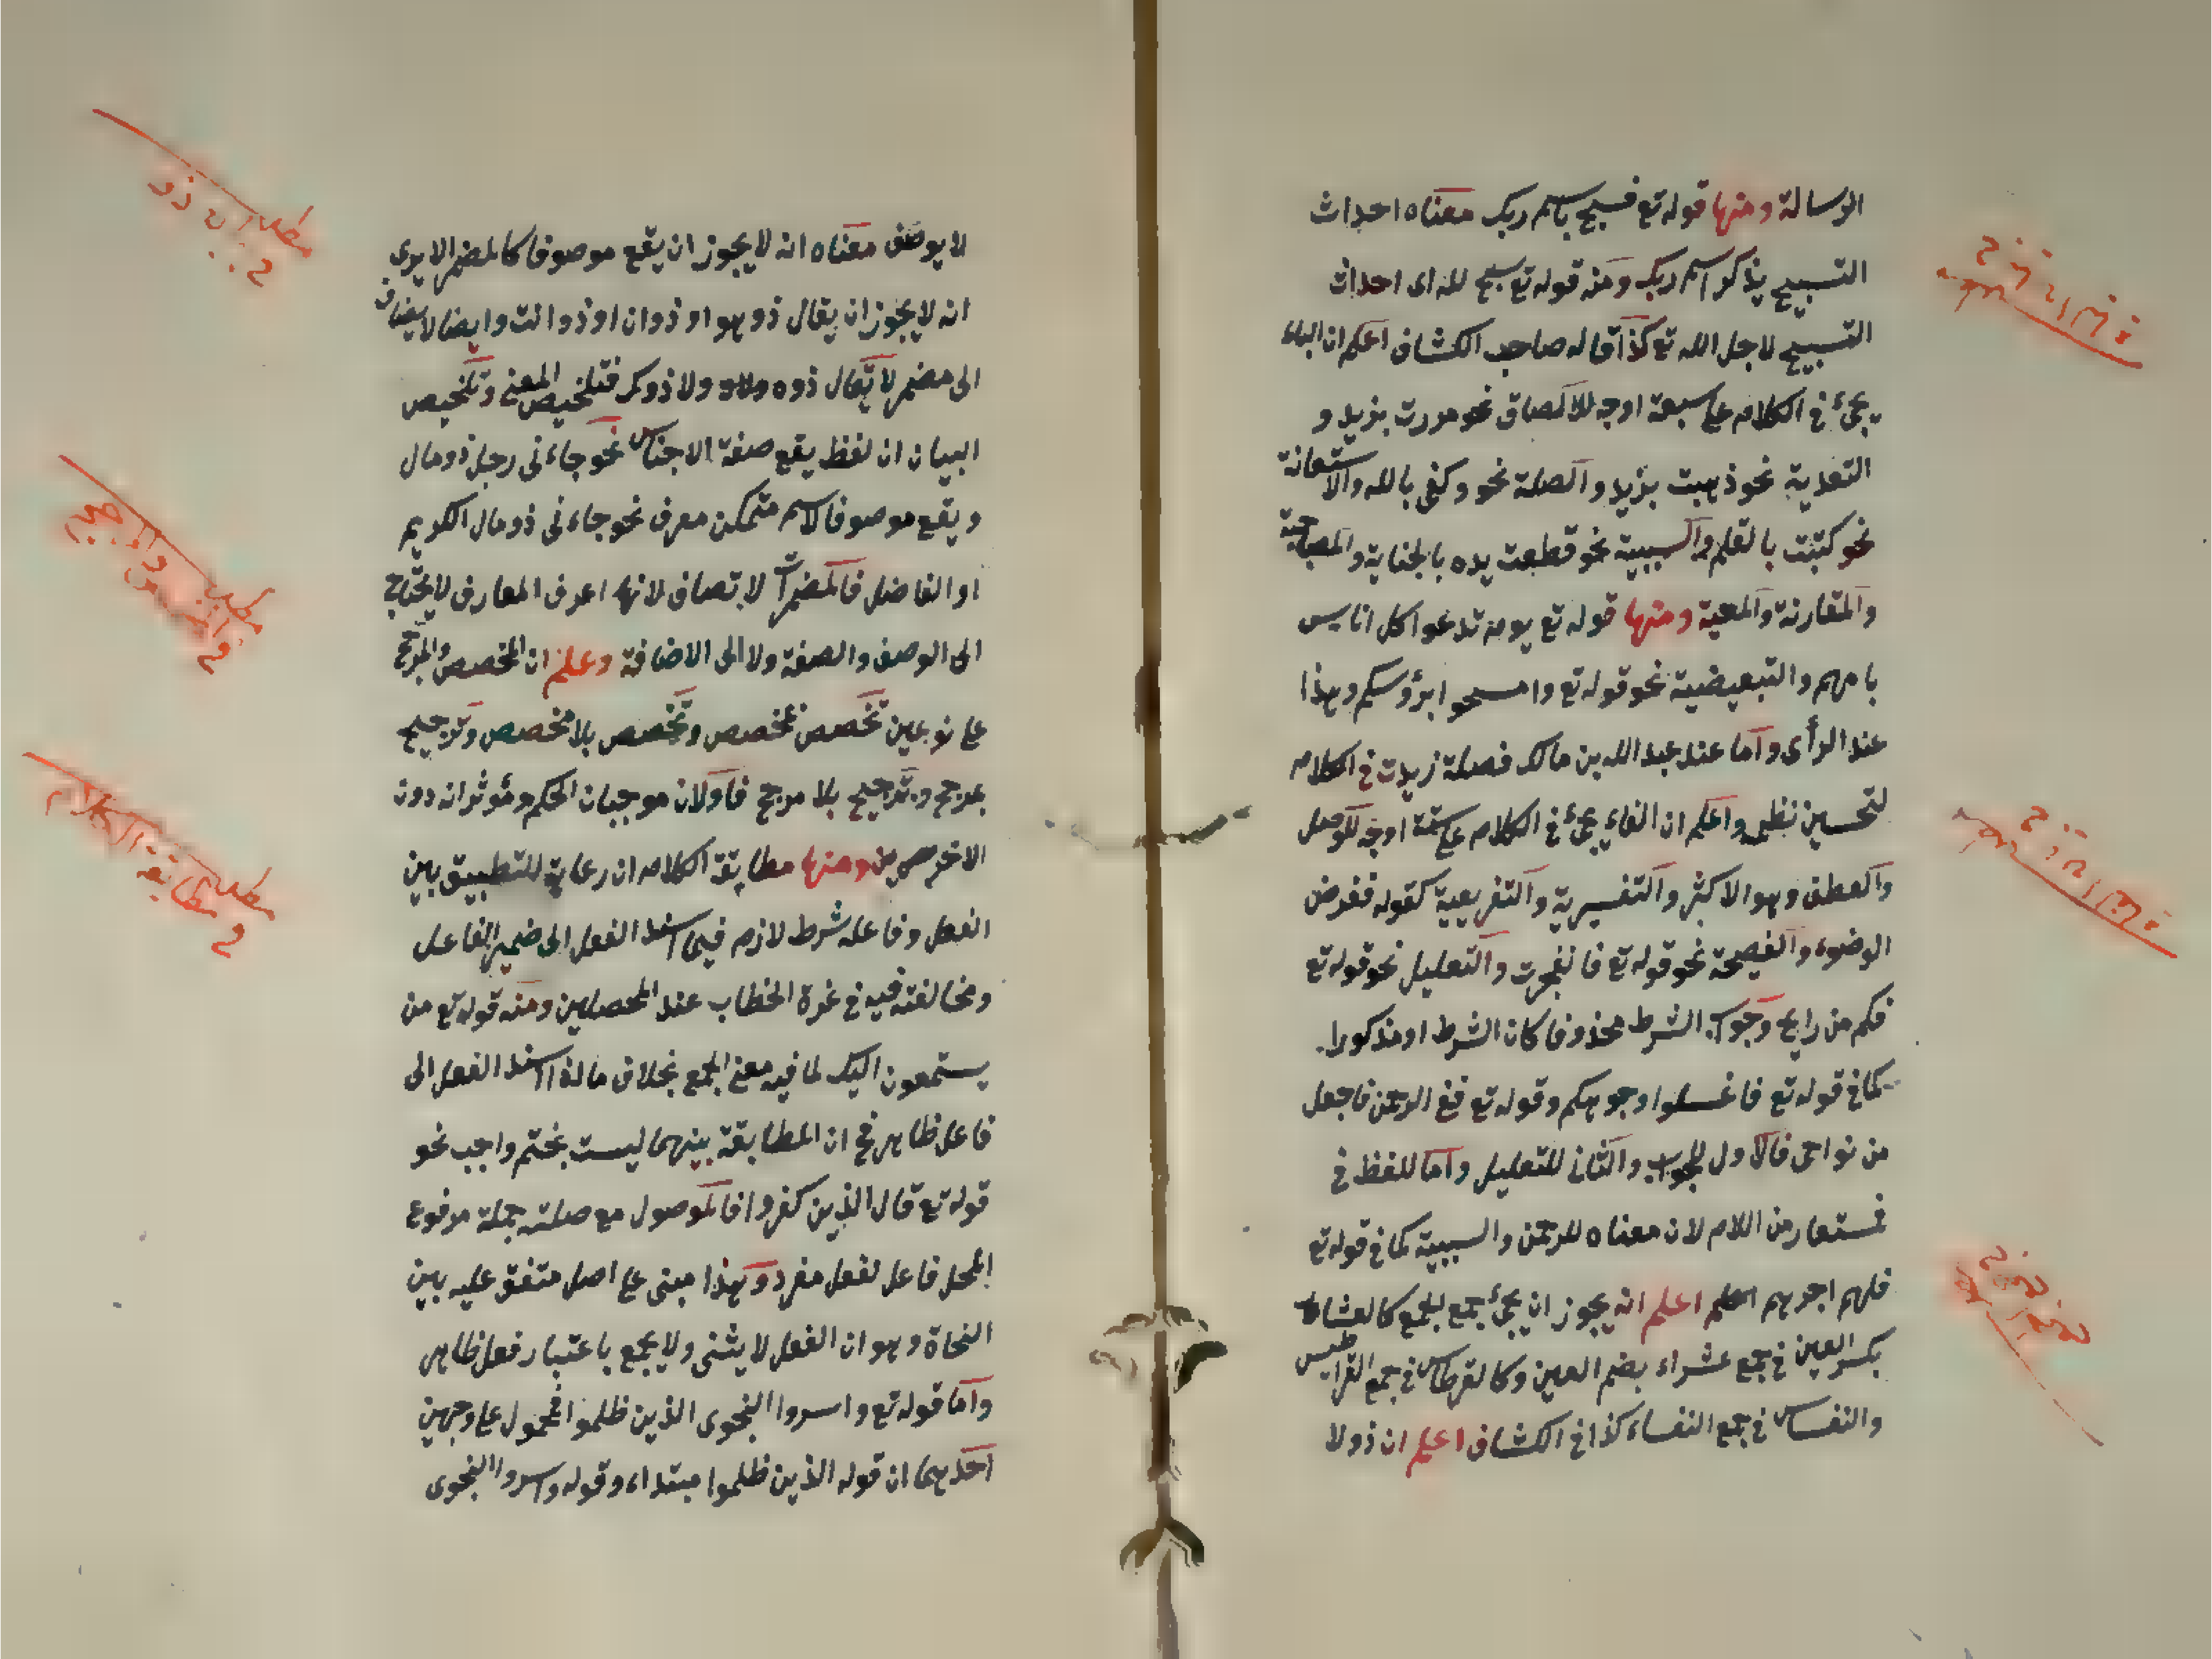 الرسالة ومنها قوله تع فسبح باسم ربك معناه احداث
التسبيح بذكر اسم ربك ومنه قوله تع سبح لله اى احداث
التسبيح لاجل الله تع كذا قاله صاحب الكشاف اعلم ان الباء
يجئ فى الكلام على سبعة اوجه للالصاق نحو مررت بزيد و
التعدية نحو ذهبت بزيد والصلة نحو وكفى بالله والاستعانة
نحو كتبت بالقلم والسببية نحو قطعت يده بالجناية والمصاحبة
والمقارنة والمعية ومنها قوله تع يوم تدعوا كل اناس
بامهم والتبعيضية نحو قوله تع وامسحوا برؤسكم وهذا
عند الرأى واما عند عبد الله بن مالك فصلة زيدت فى الكلام
لتحسين نظم واعلم ان الفاء يجئ فى الكلام على ستة اوجه للوصل
والعطف وهو الاكثر والتفسيرية والتفريعية كقوله ففرض
الوضوء والفصيحة نحو قوله تع فانفجرت والتعليل نحو قوله تع
فكم من رابح وجواب الشرط محذوفا كان الشرط او مذكورا.
كما فى قوله تع فاغسلوا وجوهكم وقوله تع ففى الرحمن فاجعل
من نواحى فالاول للجواب والثانى للتعليل واما للفظ فى
فمستعار من اللام لان معناه للرحمن والسببية كما فى قوله تع
فلهم اجرهم اعلم انه يجوز ان يجئ جمع لجمع كالعشار
بكسر العين فى جمع عشراء بضم العين وكالقرطاس فى جمع القراطيس
والنفاس فى جمع النفساء كذا فى الكشاف اعلم ان ذو لا
لا يوصف معناه انه لا يجوز ان يقع موصوفا كالمضمر الا يرى
انه لا يجوز ان يقال ذو هو او ذوان او ذوانت وايضا لا يضاف
الى مضمر لا يقال ذوه ولا ذوكر فتلخيص المعنى وتلخيص
البيان ان لفظ يقع صفة الاجناس نحو جاءنى رجل ذو مال
ويقع موصوفا لاسم متمكن معرف نحو جاءنى ذو مال الكريم
او الفاضل فالمضمرات لا تضاف لانها اعرف المعارف لا يحتاج
الى الوصف والصفة ولا الى الاضافة وعلم ان المخصص والمرجح
على نوعين تخصص بمخصص وتخصص بلا مخصص وترجيح
بمرجح وترجيح بلا مرجح فالاولان موجبان الحكم ومؤثران دون
الاخرين ومنها مطابقة الكلام ان رعاية للتطبيق بين
الفعل وفاعله شرط لازم فيما اسند الفعل الى ضمير الفاعل
ومخالفته فيه فى غرة الخطاب عند المحصلين ومنه قوله تع من
يستمعون اليك لما فيه معنى الجمع بخلاف ما اذا اسند الفعل الى
فاعل ظاهر فح ان المطابقة بينهما ليست بختم واجب نحو
قوله تع قال الذين كفروا فالموصول مع صلته جملة مرفوع
المحل فاعل لفعل مفرد وهذا مبنى على اصل متفق عليه بين
النحاة وهو ان الفعل لا يثنى ولا يجمع باعتبار فعل ظاهر
واما قوله تع واسروا النجوى الذين ظلموا فمحمول على وجهين
احدهما ان قوله الذين ظلموا مبتداء وقوله واسروا النجوى
مطلب فى بيان ذو
مطلب فى المخصص والمرجح
مطلب فى مطابقة الكلام